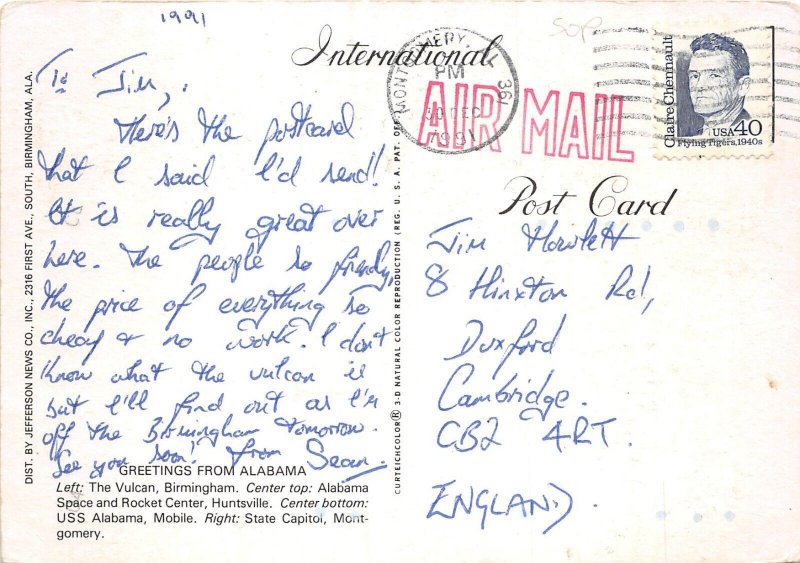 1991
SOP
International
MONTGOMERY, AL 361
PM
30 DEC
1991
AIR MAIL
Claire Chennault
USA 40
Flying Tigers, 1940s
Post Card
To Jim,
Here's the postcard
that I said I'd send!
It is really great over
here. The people so friendly,
the price of everything so
cheap & no work. I don't
know what the vulcan is
but I'll find out as I'm
off the Birmingham tomorrow.
See you soon! from Sean.
GREETINGS FROM ALABAMA
Left: The Vulcan, Birmingham. Center top: Alabama
Space and Rocket Center, Huntsville. Center bottom:
USS Alabama, Mobile. Right: State Capitol, Mont-
gomery.
DIST. BY JEFFERSON NEWS CO., INC., 2316 FIRST AVE., SOUTH, BIRMINGHAM, ALA.
CURTEICHCOLOR® 3-D NATURAL COLOR REPRODUCTION (REG. U. S. A. PAT. OFF.
Jim Howlett
8 Hinxton Rd,
Duxford
Cambridge.
CB2 4RT.
ENGLAND.